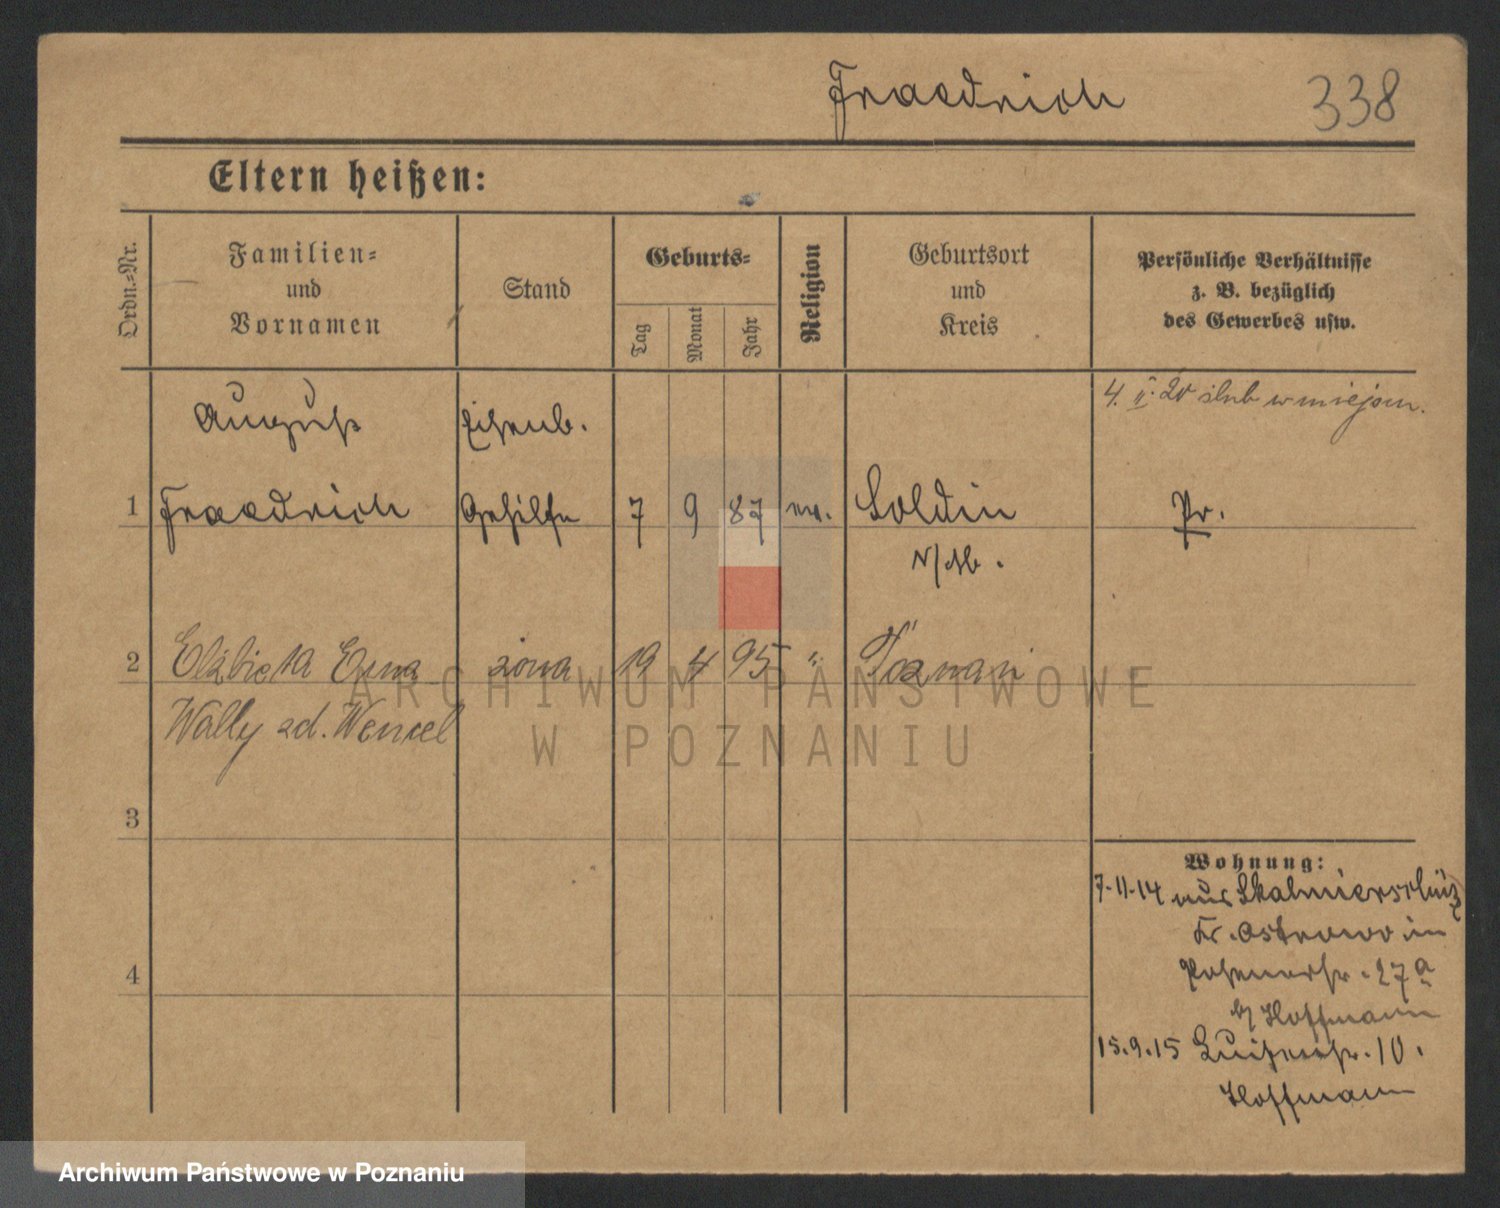 Fraedrich
338
Eltern heißen:
Ordn.-Nr.
Familien-
und
Vornamen
Stand
Geburts-
Tag
Monat
Jahr
Religion
Geburtsort
und
Kreis
Persönliche Verhältnisse
z. B. bezüglich
des Gewerbes usw.
4. II. 20 ślub w miejscu.
August Eisenb.
1 Fraedrich Gehilfe 7 9 87 ev. Soldin Pr.
N/M.
2 Elżbieta Erna żona 19 4 95 " Poznań
Wally zd. Wenzel
3
4
Wohnung:
7-11-14 aus Skalmierschütz
Kr. Ostrowo in
Posenerstr. 27a
b/ Hoffmann
15.9.15 Luisenstr. 10.
Hoffmann
ARCHIWUM PAŃSTWOWE
W POZNANIU
Archiwum Państwowe w Poznaniu